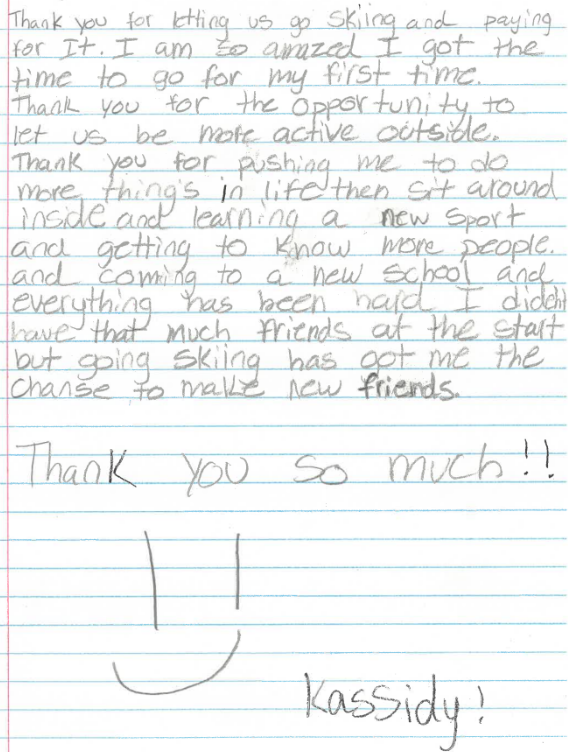 Thank you for letting us go skiing and paying
for It. I am so amazed I got the
time to go for my first time.
Thank you for the opportunity to
let us be more active outside.
Thank you for pushing me to do
more thing's in life then sit around
inside and learning a new sport
and getting to know more people.
and coming to a new school and
everything has been hard I dident
have that much friends at the start
but going skiing has got me the
chanse to make new friends.
Thank you so much!!
Kassidy!